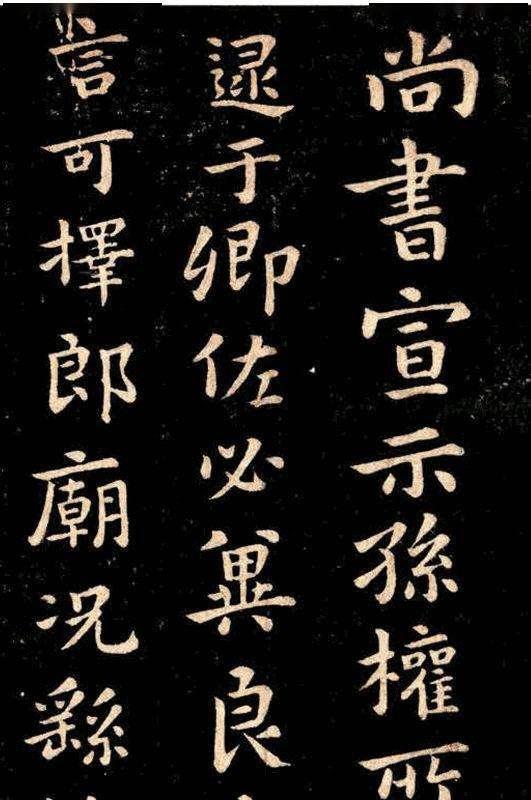 尚書宣示孫權所
逮于卿佐必兾良
言可擇郎廟况繇